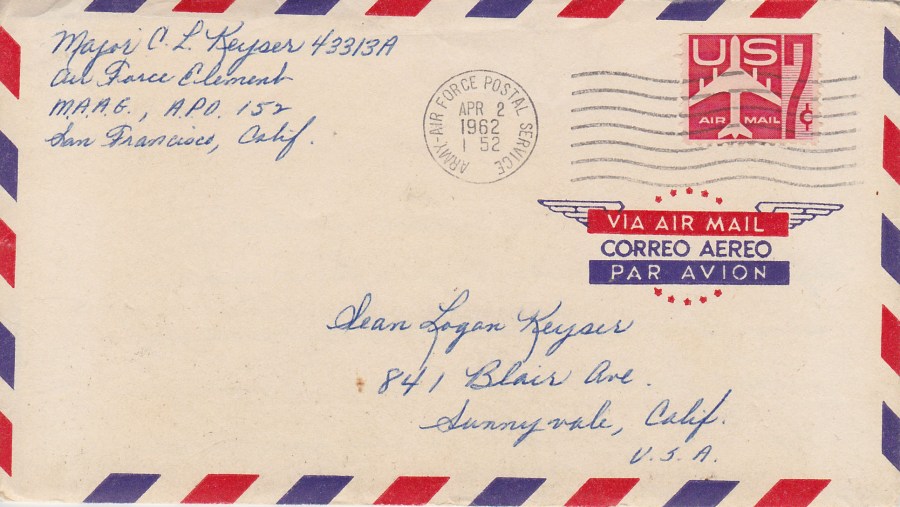 Major C. L. Keyser 43313A
Air Force Element
M.A.A.G., A.P.O. 152
San Francisco, Calif.
ARMY-AIR FORCE POSTAL SERVICE
APR 2
1962
1 52
US
AIR MAIL
7¢
VIA AIR MAIL
CORREO AEREO
PAR AVION
Sean Logan Keyser
841 Blair Ave.
Sunnyvale, Calif.
U.S.A.